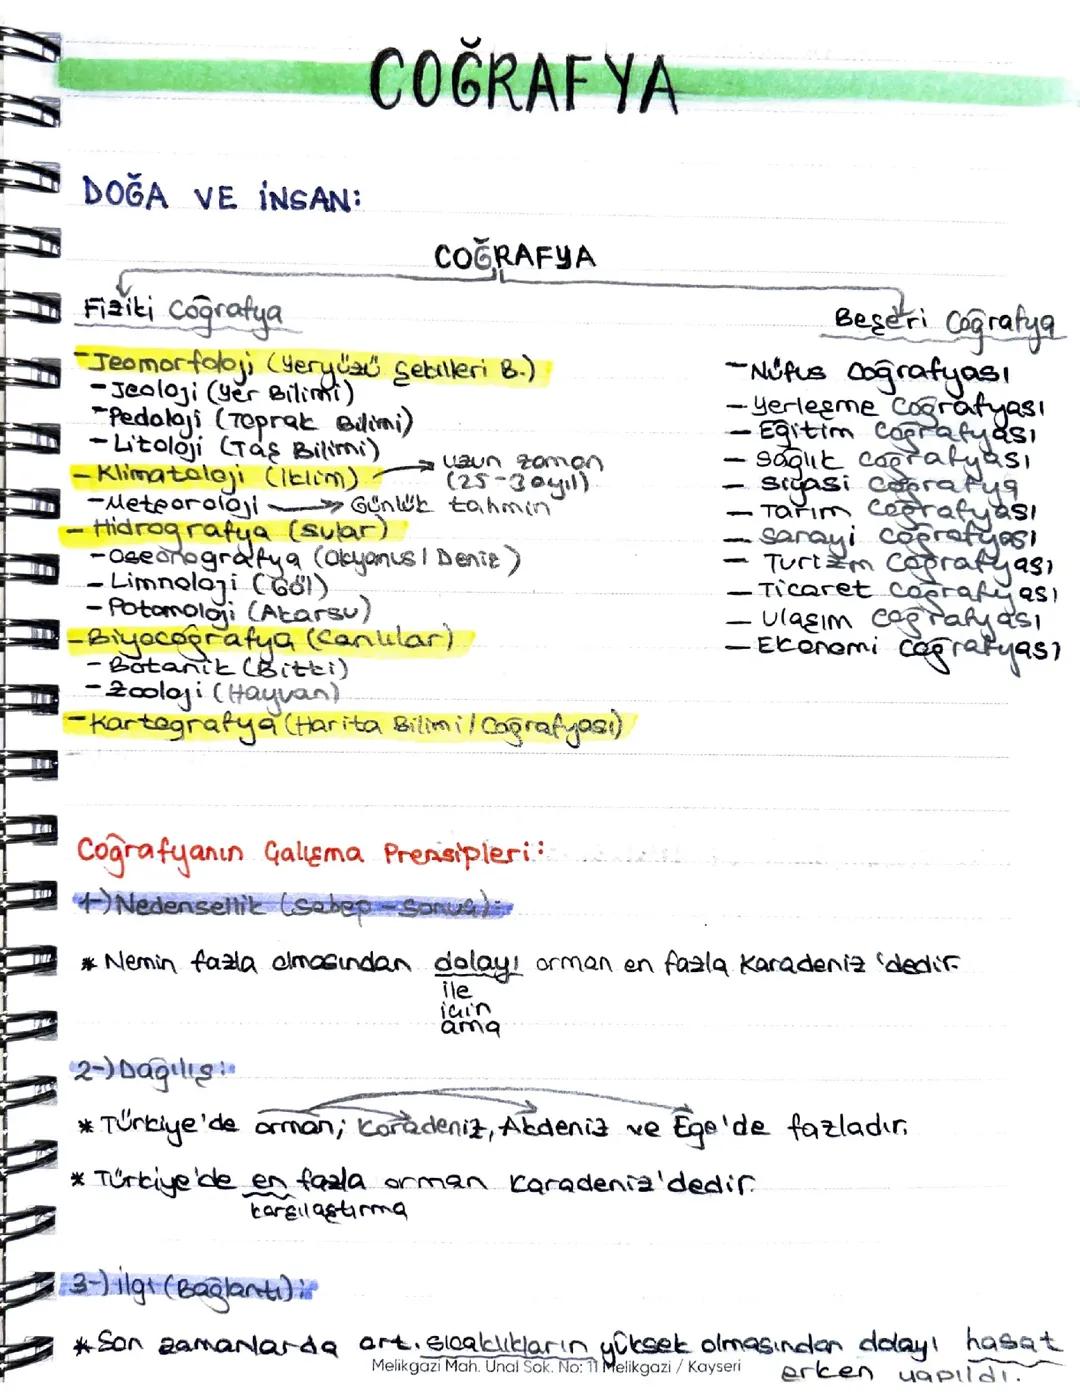 COĞRAFYA
DOĞA VE İNSAN:
COĞRAFYA
Fiziki Coğrafya
-Jeomorfoloji (Yeryüzü Şekilleri B.)
-Jeoloji (Yer Bilimi)
-Pedoloji (Toprak Bilimi)
-Litoloji (Taş Bilimi)
-Klimatoloji (İklim) → uzun zaman (25-30yıl)
-Meteoroloji → Günlük tahmin
-Hidrografya (Sular)
-Oseonografya (Okyanus / Deniz)
-Limnoloji (Göl)
-Potomoloji (Akarsu)
-Biyocoğrafya (Canlılar)
-Botanik (Bitki)
-Zooloji (Hayvan)
-Kartografya (Harita Bilimi / Coğrafyası)
Beşeri Coğrafya
-Nüfus Coğrafyası
-Yerleşme Coğrafyası
-Eğitim Coğrafyası
-Sağlık Coğrafyası
-Siyasi Coğrafya
-Tarım Coğrafyası
-Sanayi Coğrafyası
-Turizm Coğrafyası
-Ticaret Coğrafyası
-Ulaşım Coğrafyası
-Ekonomi Coğrafyası
Coğrafyanın Çalışma Prensipleri:
1-) Nedensellik (Sebep - Sonuç):
* Nemin fazla olmasından dolayı orman en fazla Karadeniz'dedir.
ile
için
ama
2-) Dağılış:
* Türkiye'de orman; Karadeniz, Akdeniz ve Ege'de fazladır.
* Türkiye'de en fazla orman Karadeniz'dedir.
karşılaştırma
3-) İlgi (Bağlantı):
* Son zamanlarda art. sıcaklıkların yüksek olmasından dolayı hasat
erken yapıldı.
Melikgazi Mah. Ünal Sok. No: 11 Melikgazi / Kayseri